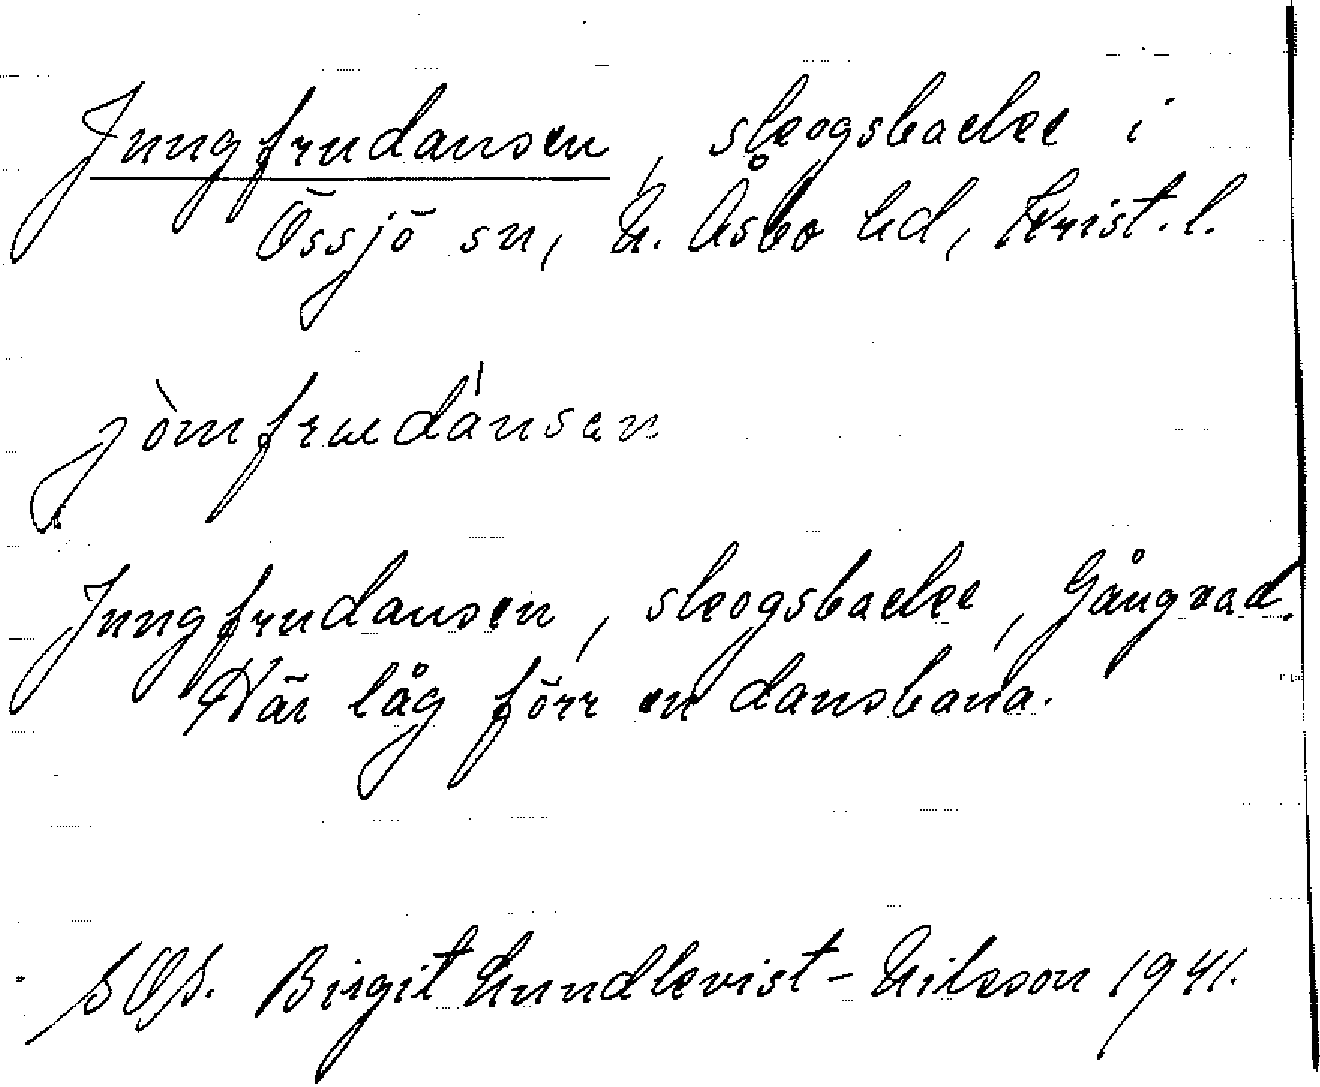 Jungfrudansen, skogsbacke i
Össjö sn, N. Åsbo hd, Krist. l.
jòmfrudánsen
Jungfrudansen, skogsbacke, Gångvad.
Här låg förr en dansbana.
Birgit Lundkvist-Nilsson 1941.